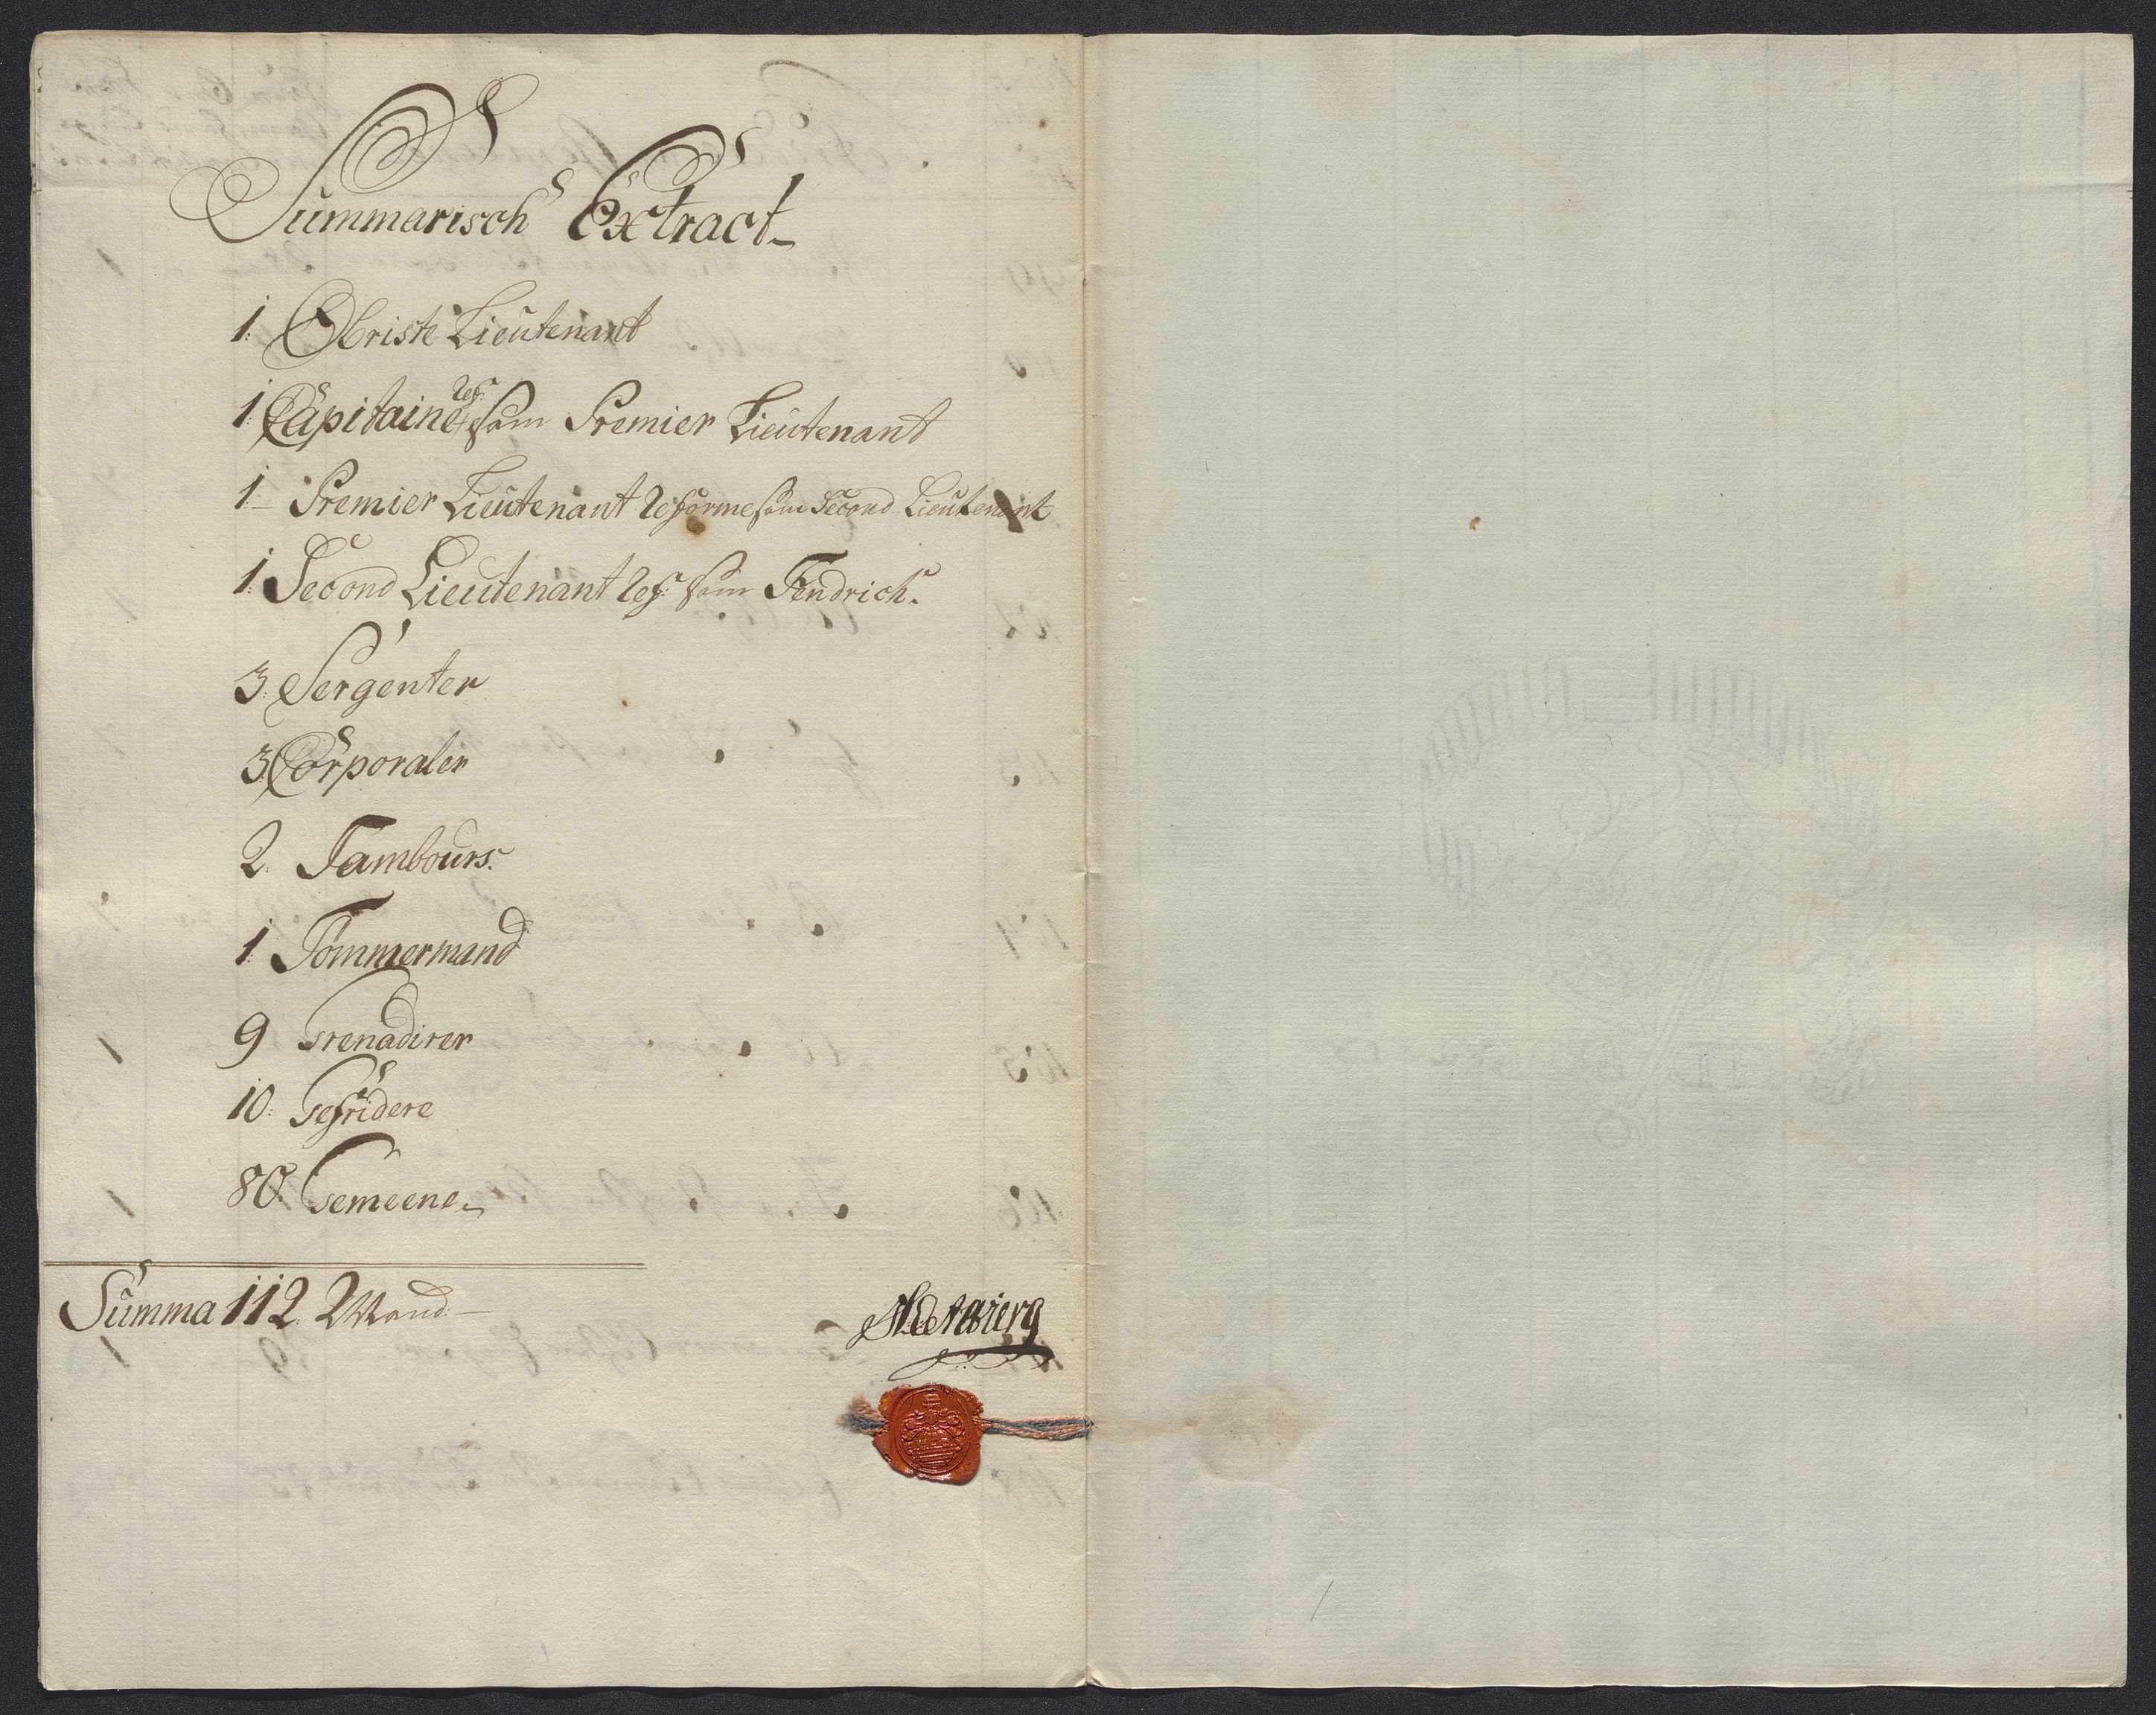 Summarisch Extract
1. Obriste Lieutenant
1. Capitaine ref: som Premier Lieutenant
1 Premier Lieutenant Reforme som Second Lieutenant
1. Second Lieutenant Ref: som Fendrich.
3. Sergenter
3. Corporaler
2. Tambours.
1. Tømmermand
9 Grenadirer
10. Gefridere
80. Gemeene
Summa 112 Mand